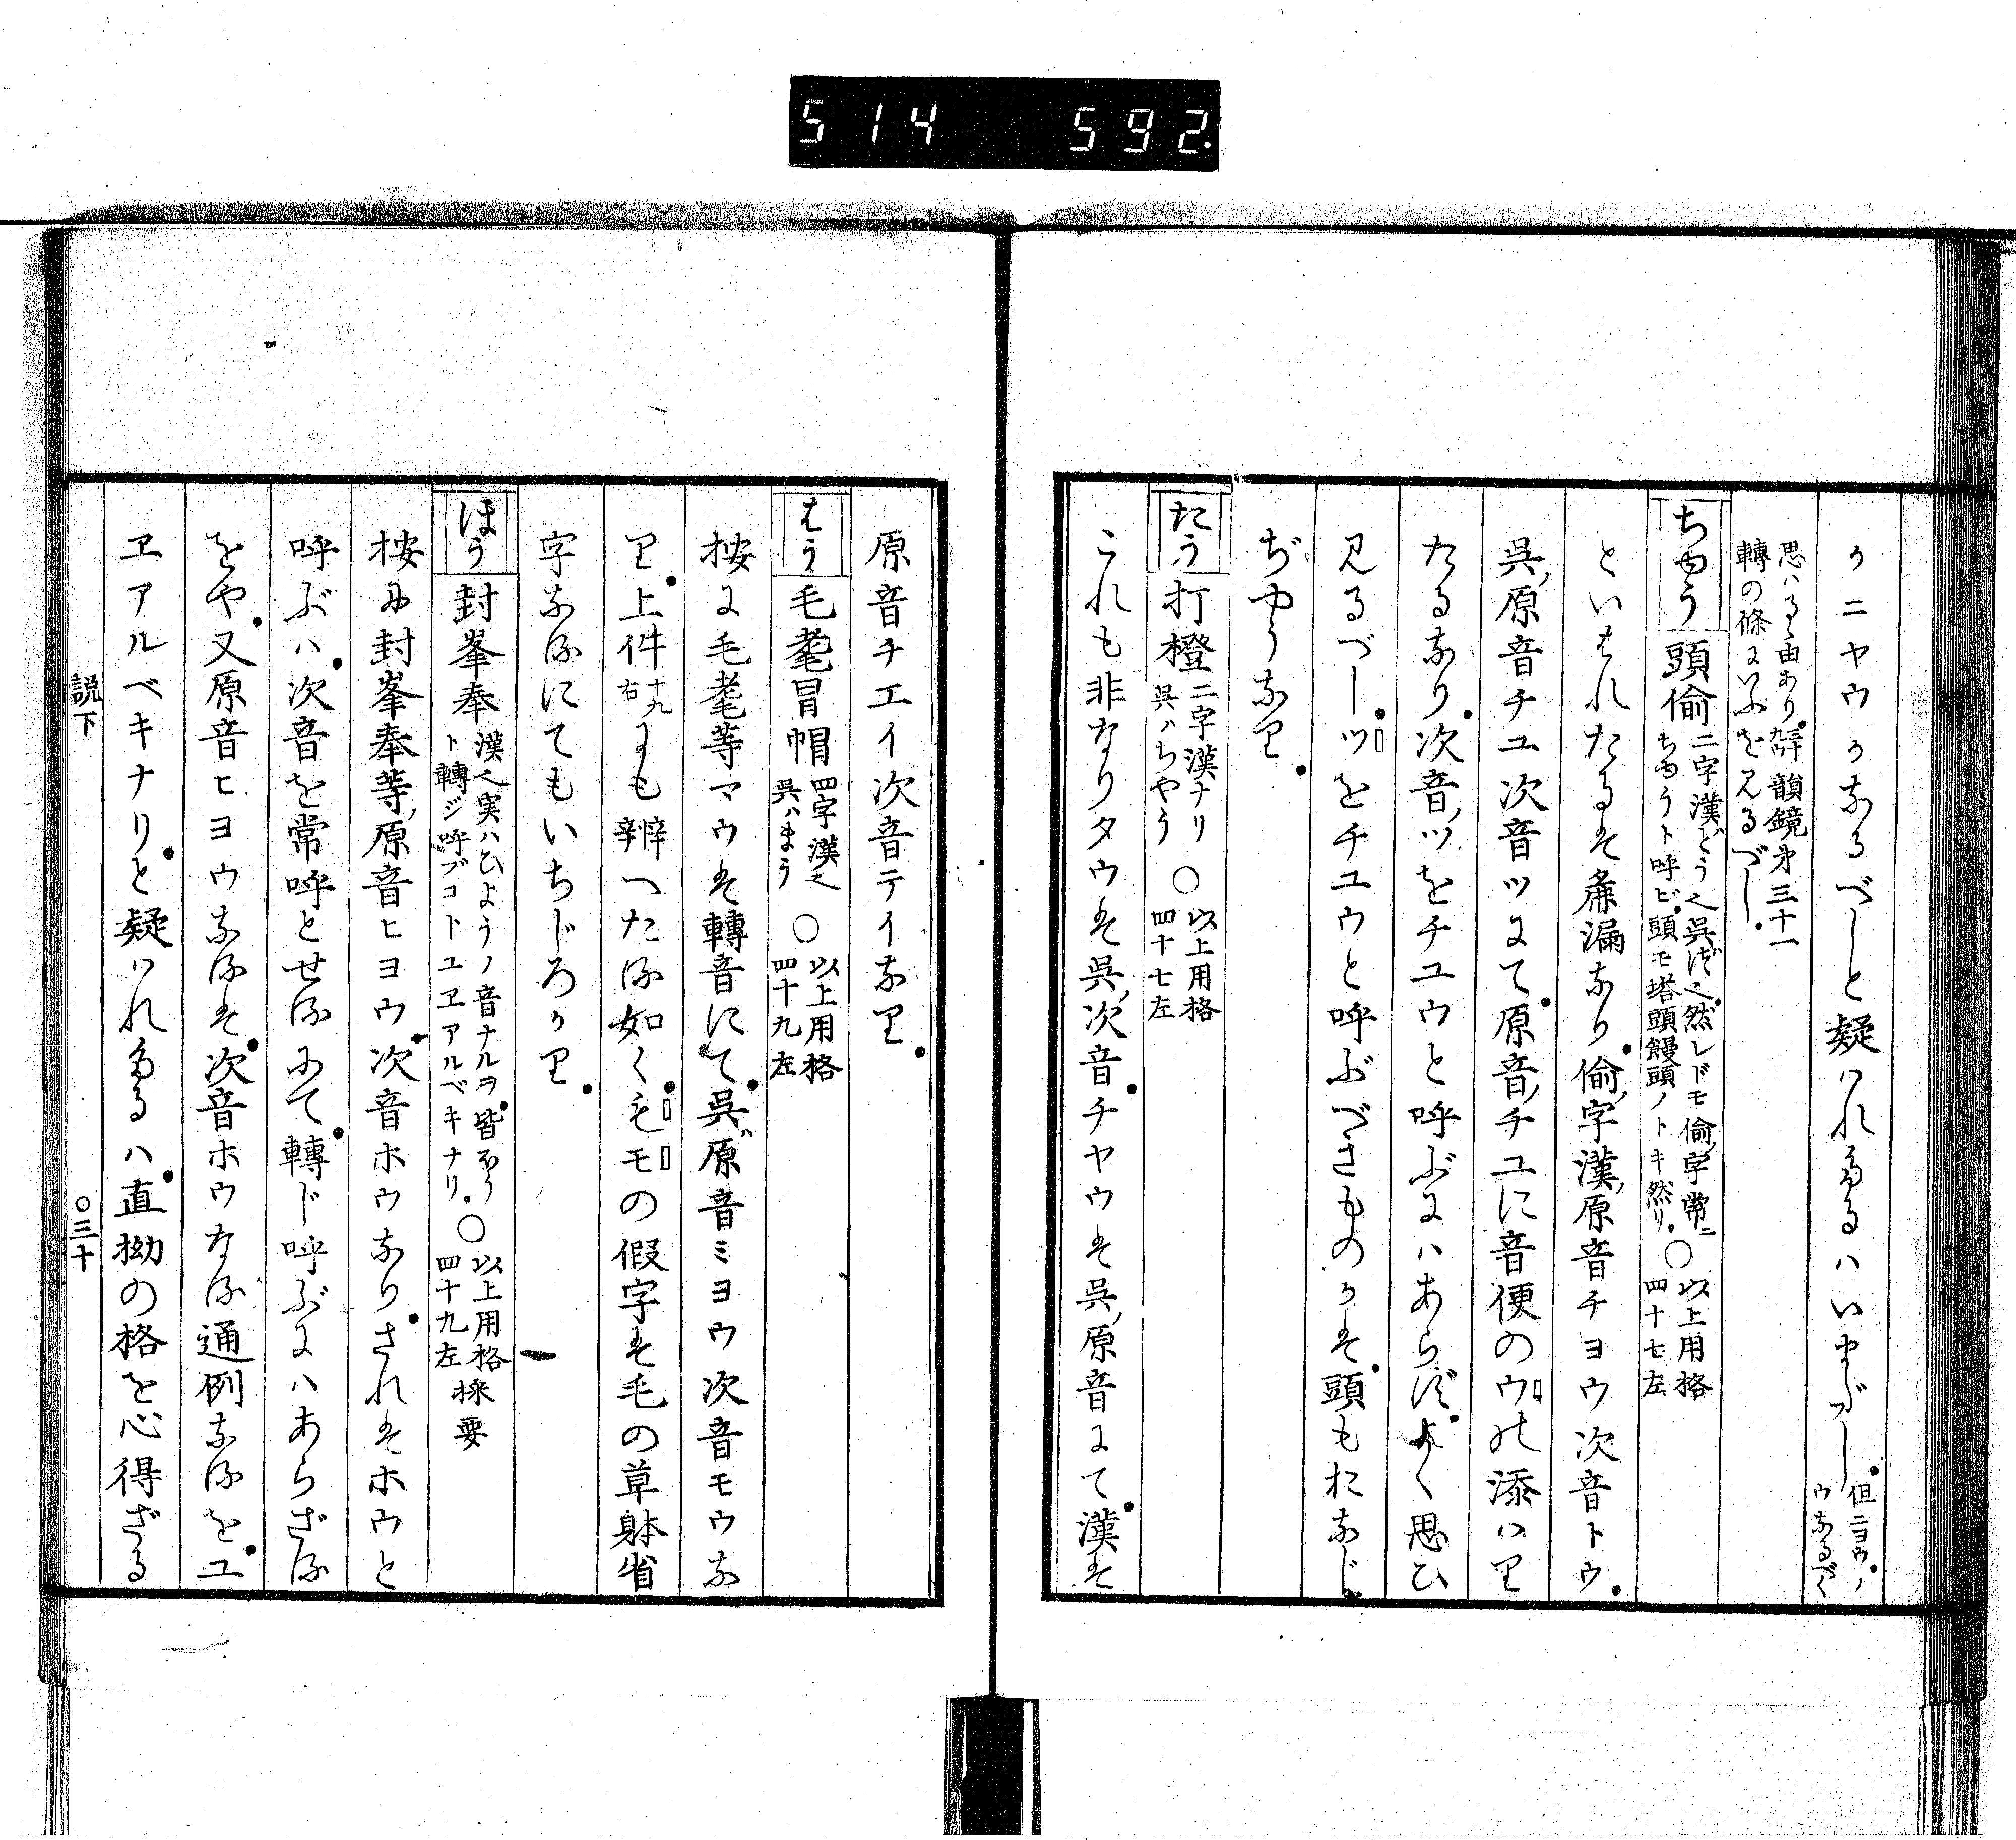 514 592.
かニヤウかなるべしと疑はれたるハいまだし。但ニヨウノ
ウなるべく
思ハるゝ由あり。韻鏡第三十一
轉の條にいふを見るべし。
ちゆう 頭偷 二字漢どう也呉づ也。然レドモ偷字常ニ
ちゆうト呼ビ。頭モ塔頭饅頭ノトキ然リ。 〇 以上用格
四十七左
といはれたるは麁漏なり。偷字漢原音チヨウ次音トウ。
呉原音チユ次音ツにて。原音チユに音便のウの添ハり
たるなり。次音ツをチユウと呼ぶにハあらず。よく思ひ
見るべし。ツをチユウと呼ぶべきものかは。頭もおなじ
ぢゆうなり。
たう 打橙 二字漢ナリ
呉ハちやう 〇 以上用格
四十七左
これも非なりタウは呉次音。チヤウは呉原音にて。漢は
原音チエイ次音テイなり。
はう 毛耄冒帽 四字漢也
呉ハまう 〇 以上用格
四十九左
按に毛耄等マウは轉音にて。呉原音ミヨウ次音モウな
り。上件十九
右にも辨へたる如く。もモの假字は毛の草躰省
字なるにてもいちじろかり。
ほう 封峯奉 漢也実ハひようノ音ナルヲ。皆ほう
ト轉ジ呼ブコトユヱアルベキナリ。 〇 以上用格
四十九左 採要
按に封峯奉等原音ヒヨウ。次音ホウなり。されはホウと
呼ぶハ。次音を常呼とせるにて。轉じ呼ぶにハあらざる
をや。又原音ヒヨウなるは。次音ホウなる通例なるを。ユ
ヱアルベキナリ。と疑はれたるハ。直拗の格を心得ざる
説下
〇三十